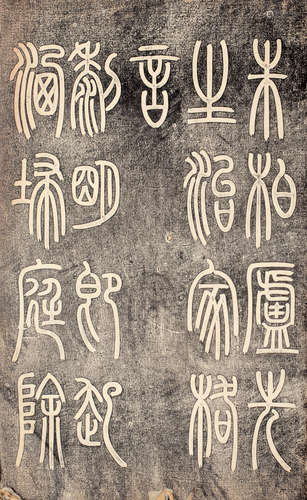 朱柏廬先
生治家格
言
黎明即起
洒掃庭除